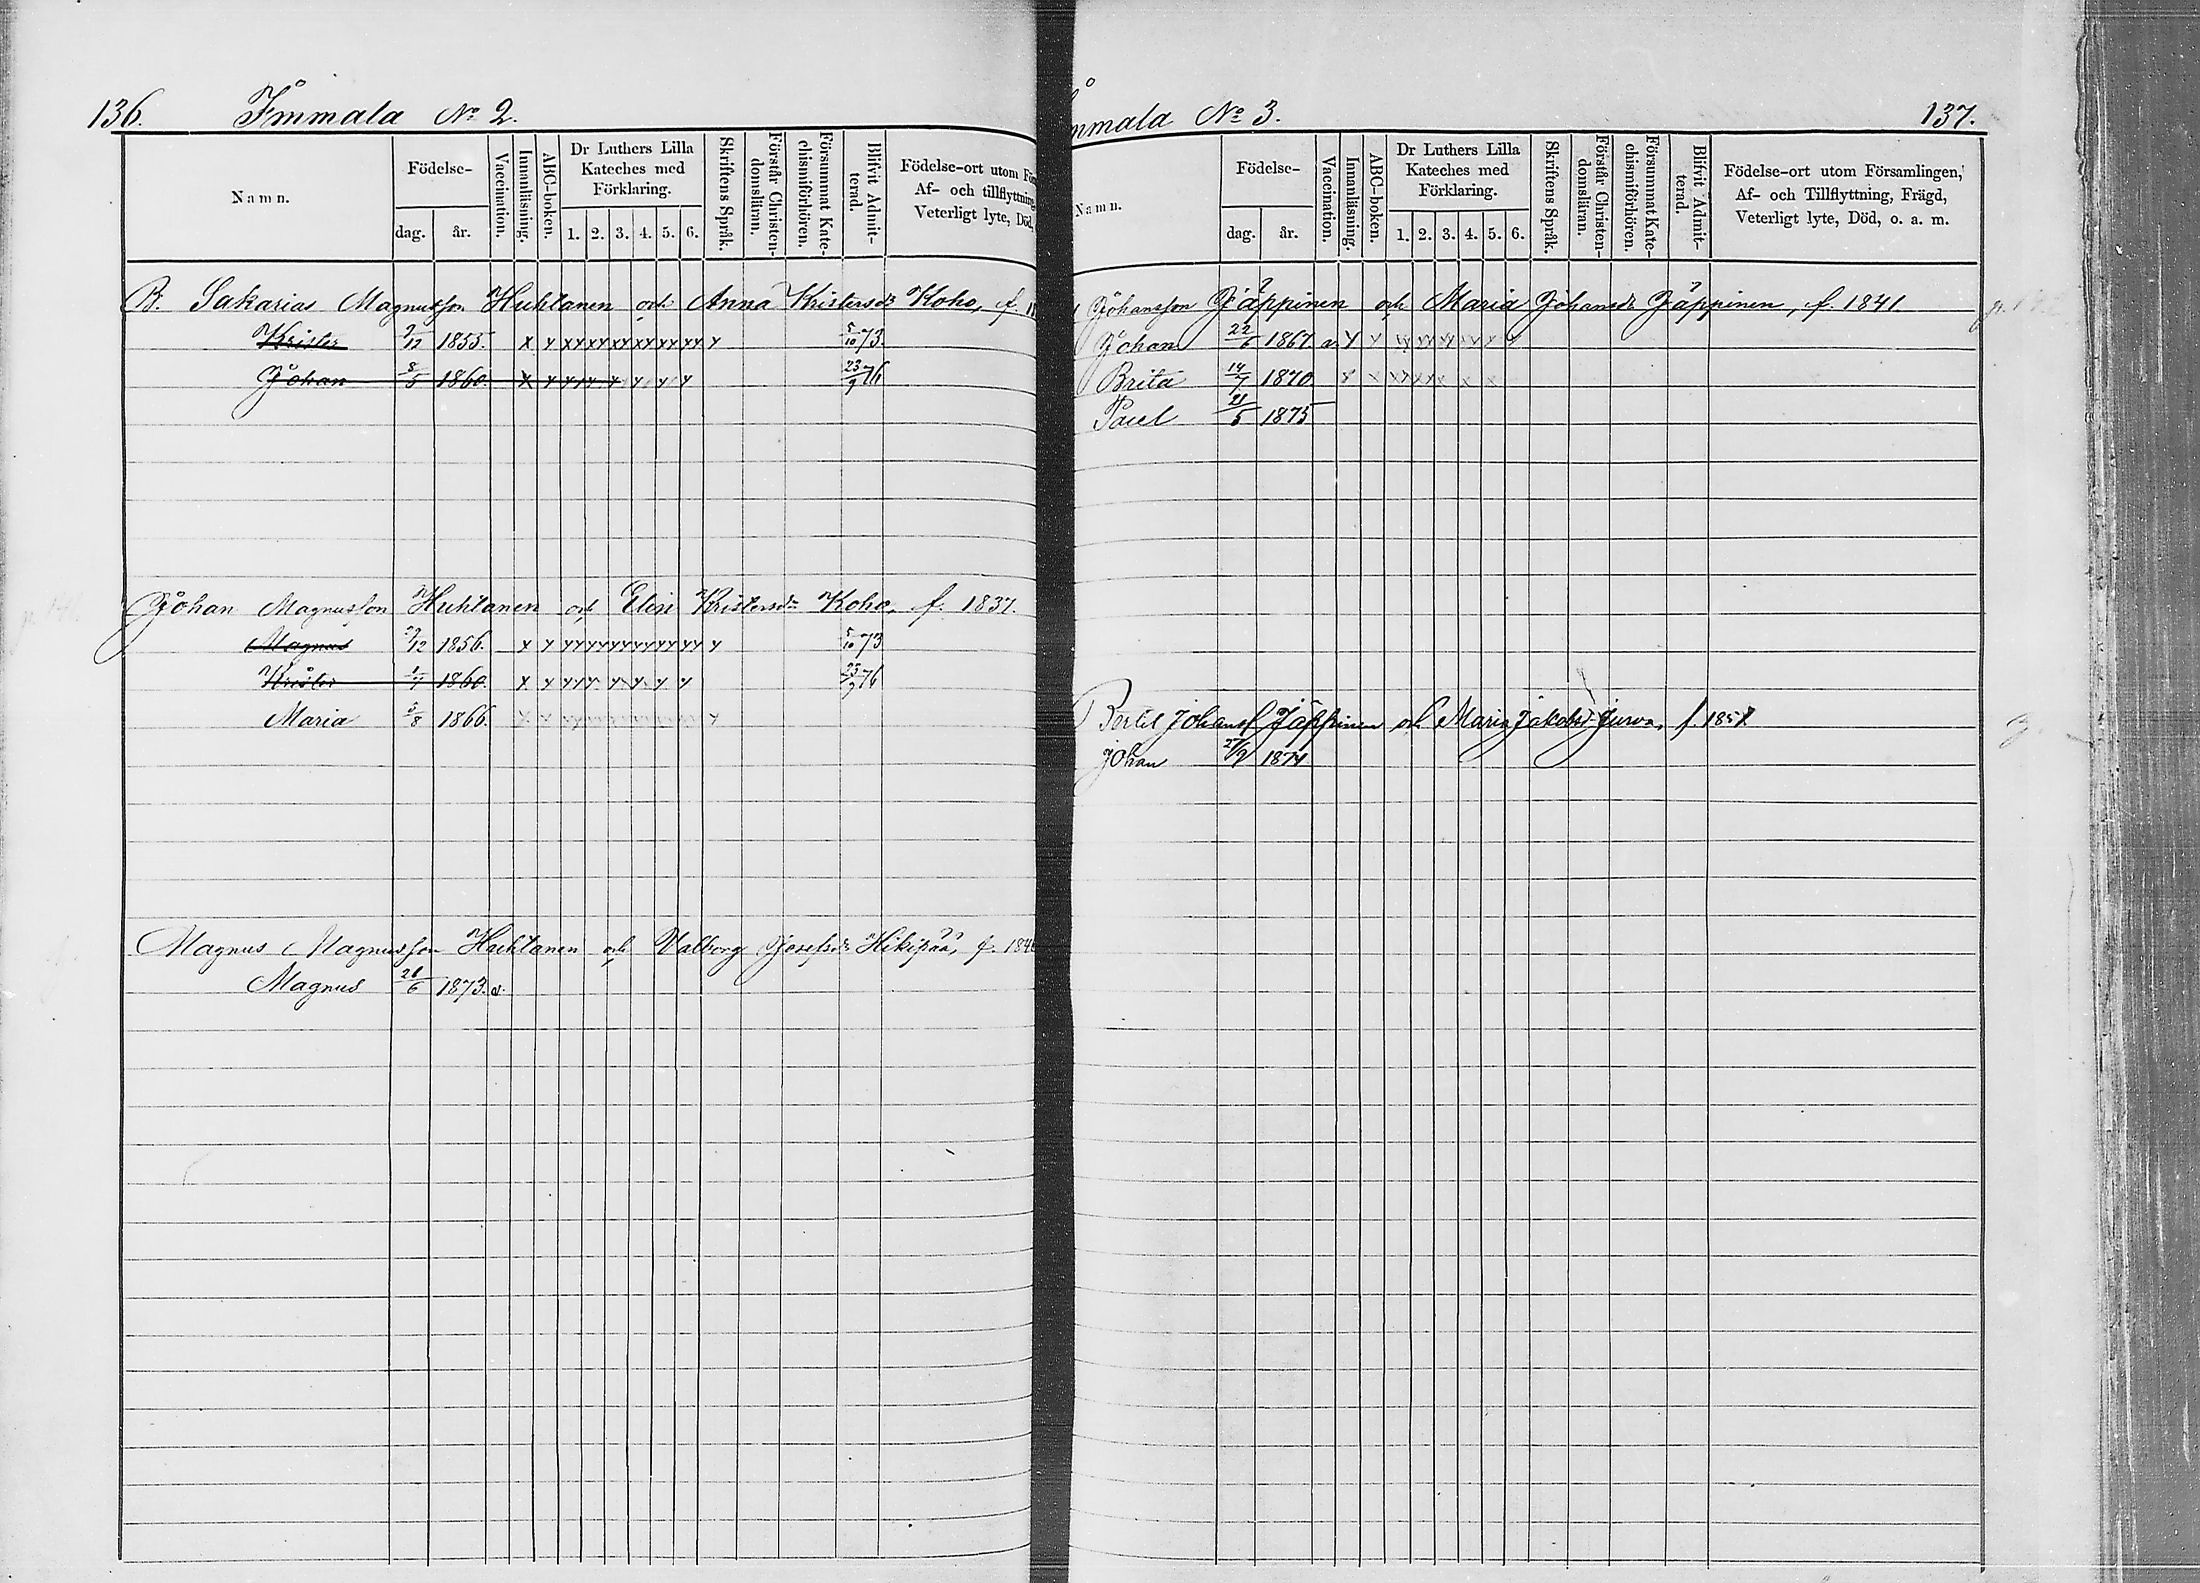 136. Immala No 2.
Namn.
Födelse-
dag. år.
Vaccination.
Innanläsning.
ABC-boken.
Dr Luthers Lilla
Kateches med
Förklaring.
1. 2. 3. 4. 5. 6.
Skriftens Språk.
Förstår Christen-
domsläran.
Försummat Kate-
chismiförhören.
Blifvit Admit-
terad.
Födelse-ort utom
Af- och tillflyttning
Veterligt lyte, Död,
B. Sakarias Magnusson Huhtanen och Anna Kristersdr Koho, f.
Krister 9/12 1855. x y xx xy xy xy xy xy y 5/10 73.
Johan 8/5 1860. x y y y y y y y 23/9 76
Johan Magnusson Huhtanen och Elin Kristersdr Koho, f. 1837.
Magnus 1856. x y yy yy yy yy yy yy y 5/10 73
Krister 1860. x y yy y y y y y 23/9 76
Maria 5/8 1866. x x
Magnus Magnusson Huhtanen och Valborg Josefsdr Hikipää, f.
Magnus 26/6 1873. v.
mmala No 3. 137.
Namn.
Födelse-
dag. år.
Vaccination.
Innanläsning.
ABC-boken.
Dr Luthers Lilla
Kateches med
Förklaring.
1. 2. 3. 4. 5. 6.
Skriftens Språk.
Förstår Christen-
domsläran.
Försummat Kate-
chismiförhören.
Blifvit Admit-
terad.
Födelse-ort utom Församlingen,
Af- och Tillflyttning, Frägd,
Veterligt lyte, Död, o. a. m.
Johansson Jäppinen och Maria Johansdr Jäppinen, f. 1841.
Johan 22/6 1867 v. y y
Brita 14/7 1870
Paul 21/5 1875
Bertil Johanss Jäppinen och Maria Jakobsd Jurva, f. 1851.
Johan 27/9 1874